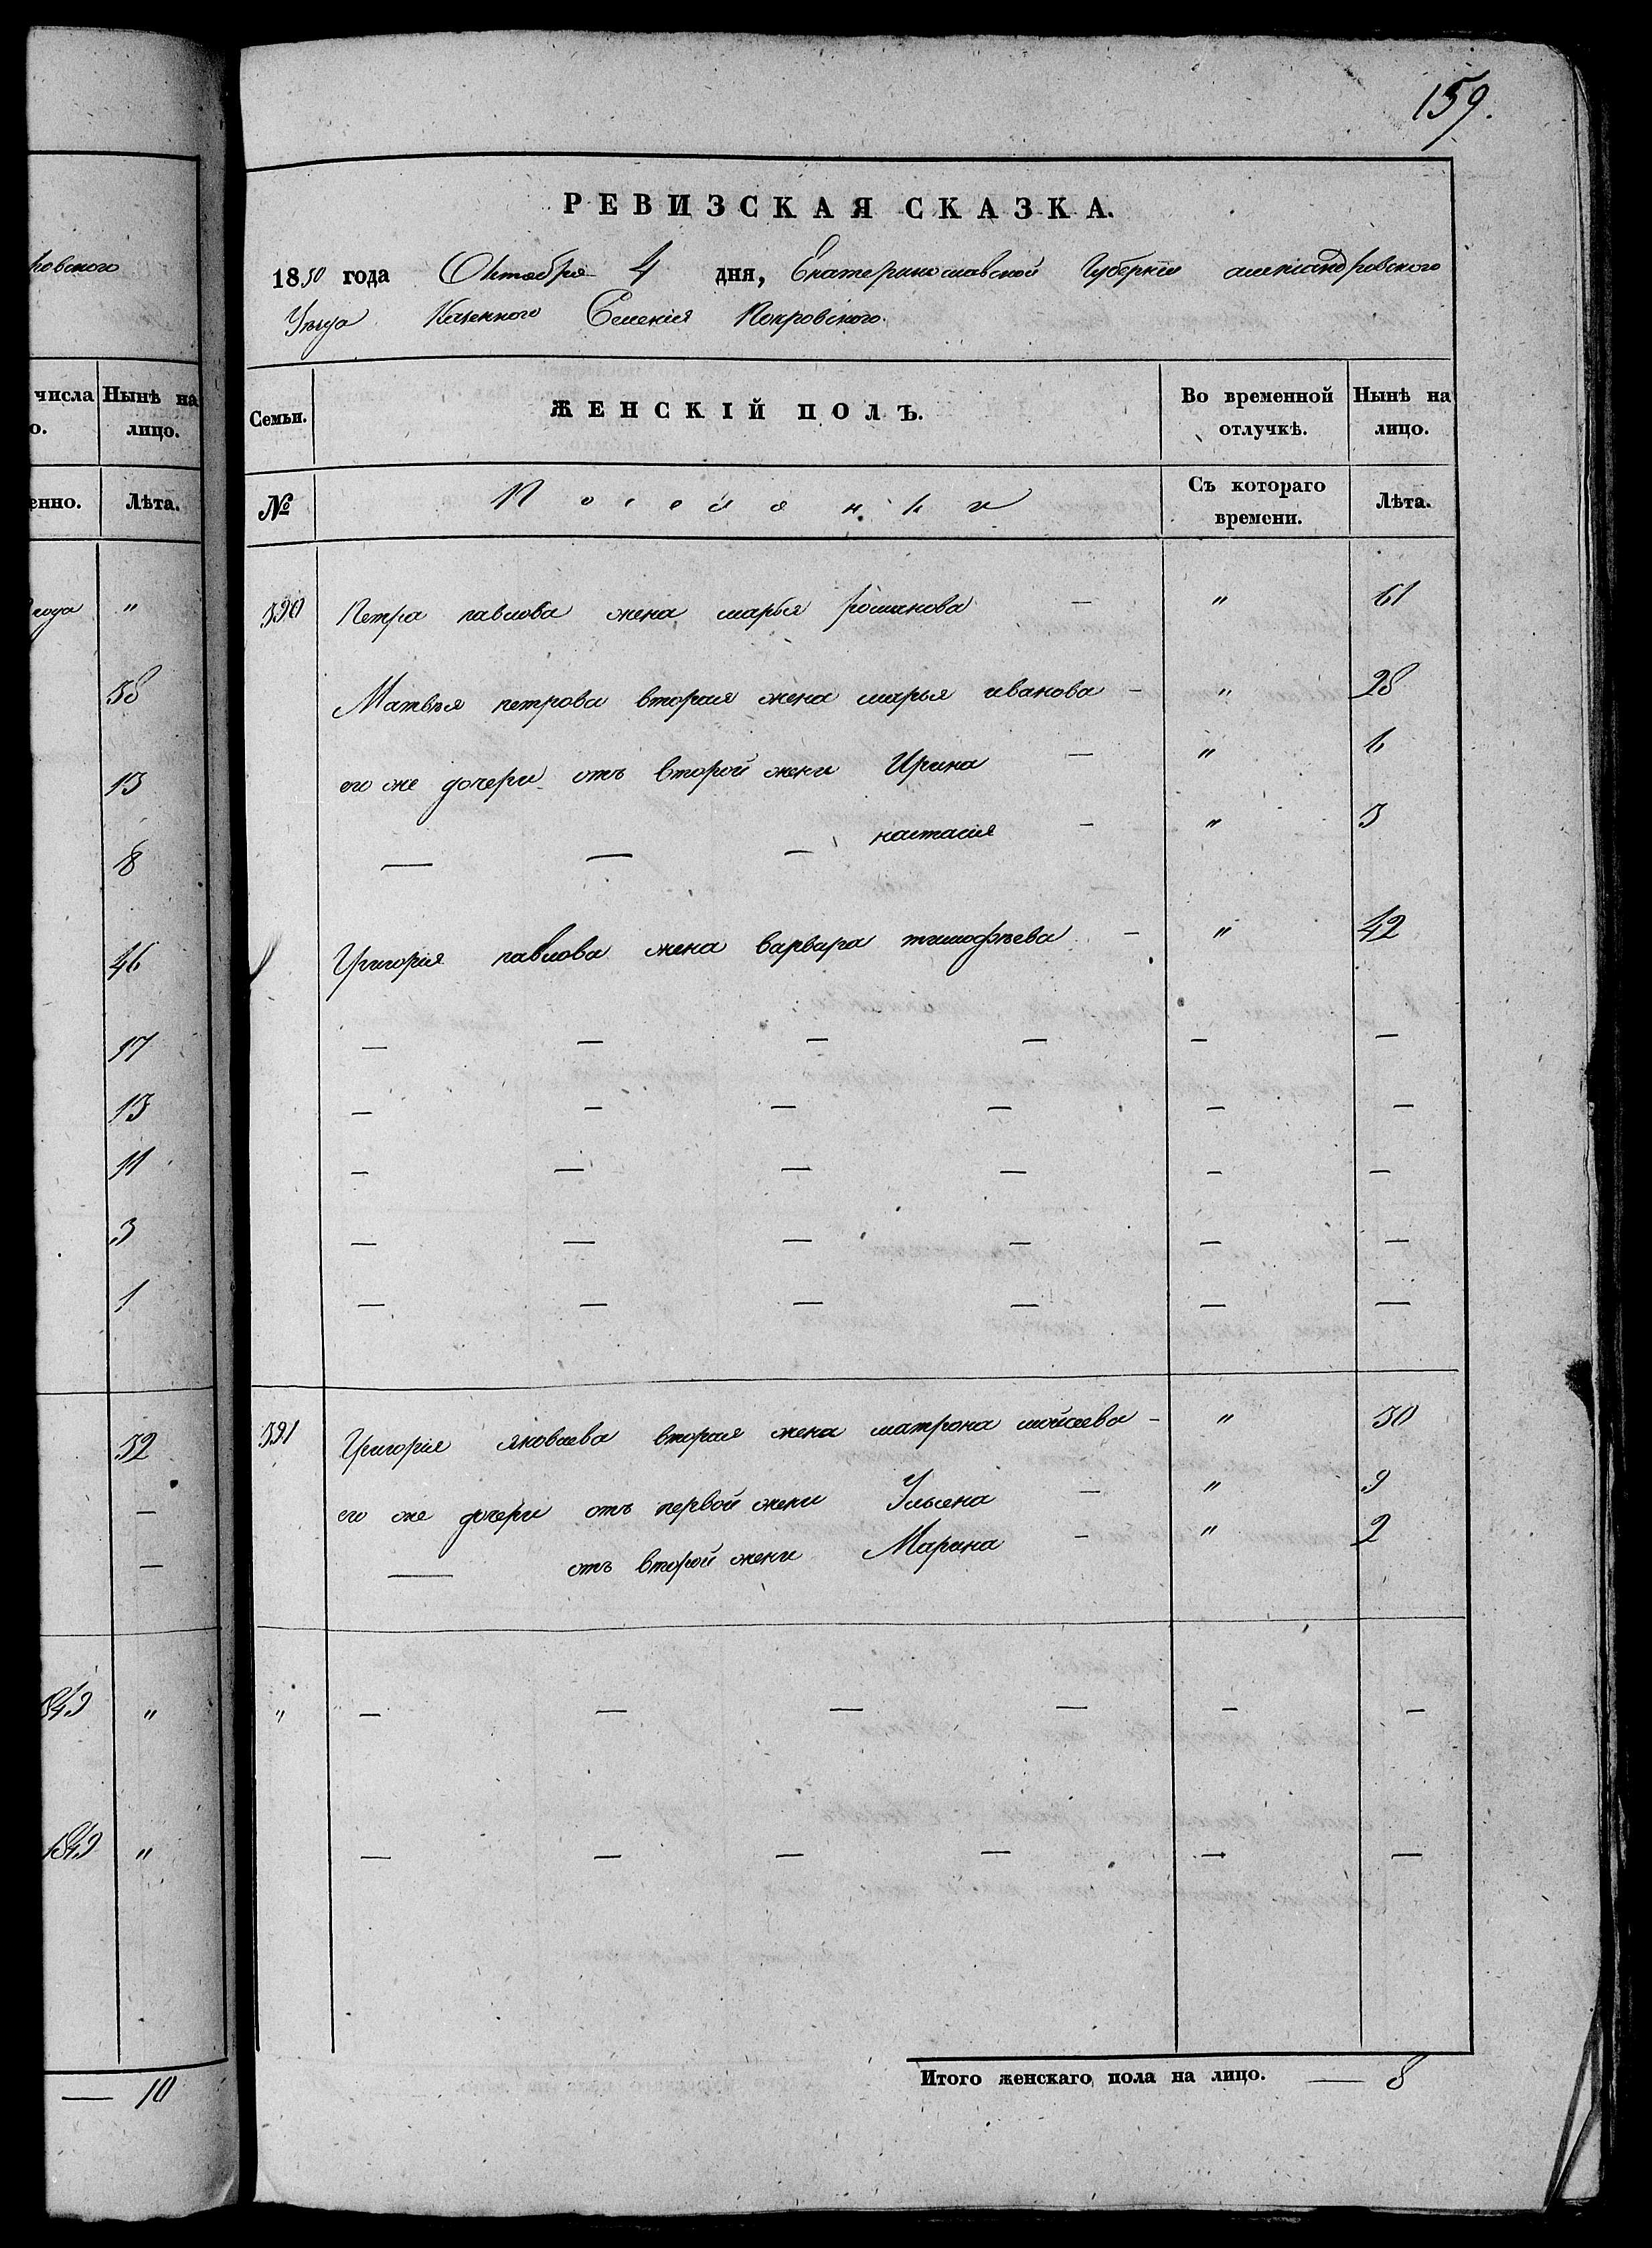 159.
РЕВИЗСКАЯ СКАЗКА.
1850 года Октября 4 дня, Екатеринославской Губерніи александровского
Уѣзда Казенного Селенія Покровского.
ковского
числа Нынѣ на
о. лицо.
енно. Лѣта.
Семьи. ЖЕНСКІЙ ПОЛЪ. Во временной отлучкѣ. Нынѣ на лицо.
№ Поселянки Съ котораго времени. Лѣта.
года "
38
13
8
46
17
13
11
3
1
32
—
—
849 "
1849 "
— 10
390 Петра павлова жена марья романова — " 61
Матвѣя петрова вторая жена марья иванова — " 28
его же дочери отъ второй жены Ирина — " 6
— — — настасія — " 3
Григорія павлова жена варвара тимофѣева — " 42
— — — — — —
— — — — — —
— — — — — —
— — — — — —
— — — — — —
391 Григорія яковлева вторая жена матрона мойсеева — " 30
его же дочери отъ первой жены Ульяна — " 9
— отъ второй жены Марина — " 2
" — — — — — —
— — — — — —
Итого женскаго пола на лицо. — 8